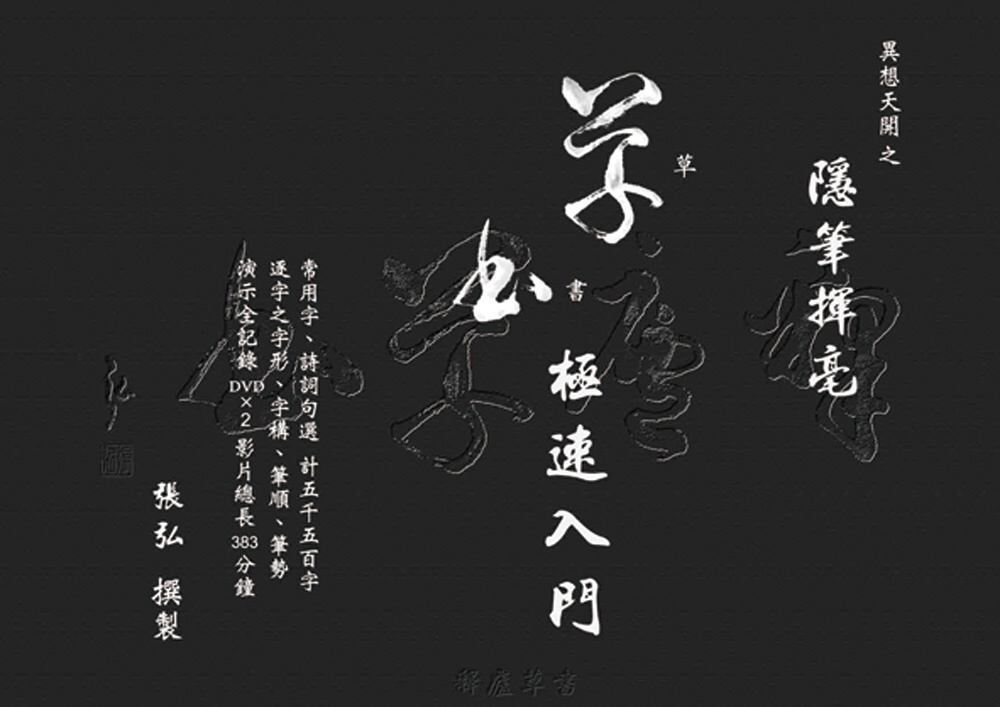 異想天開之
隱筆揮毫
草
草
書
書
極速入門
常用字、詩詞句選 計五千五百字
逐字之字形、字構、筆順、筆勢
演示全記錄 DVD×2 影片總長 383 分鐘
張弘 撰製
釋廬草書